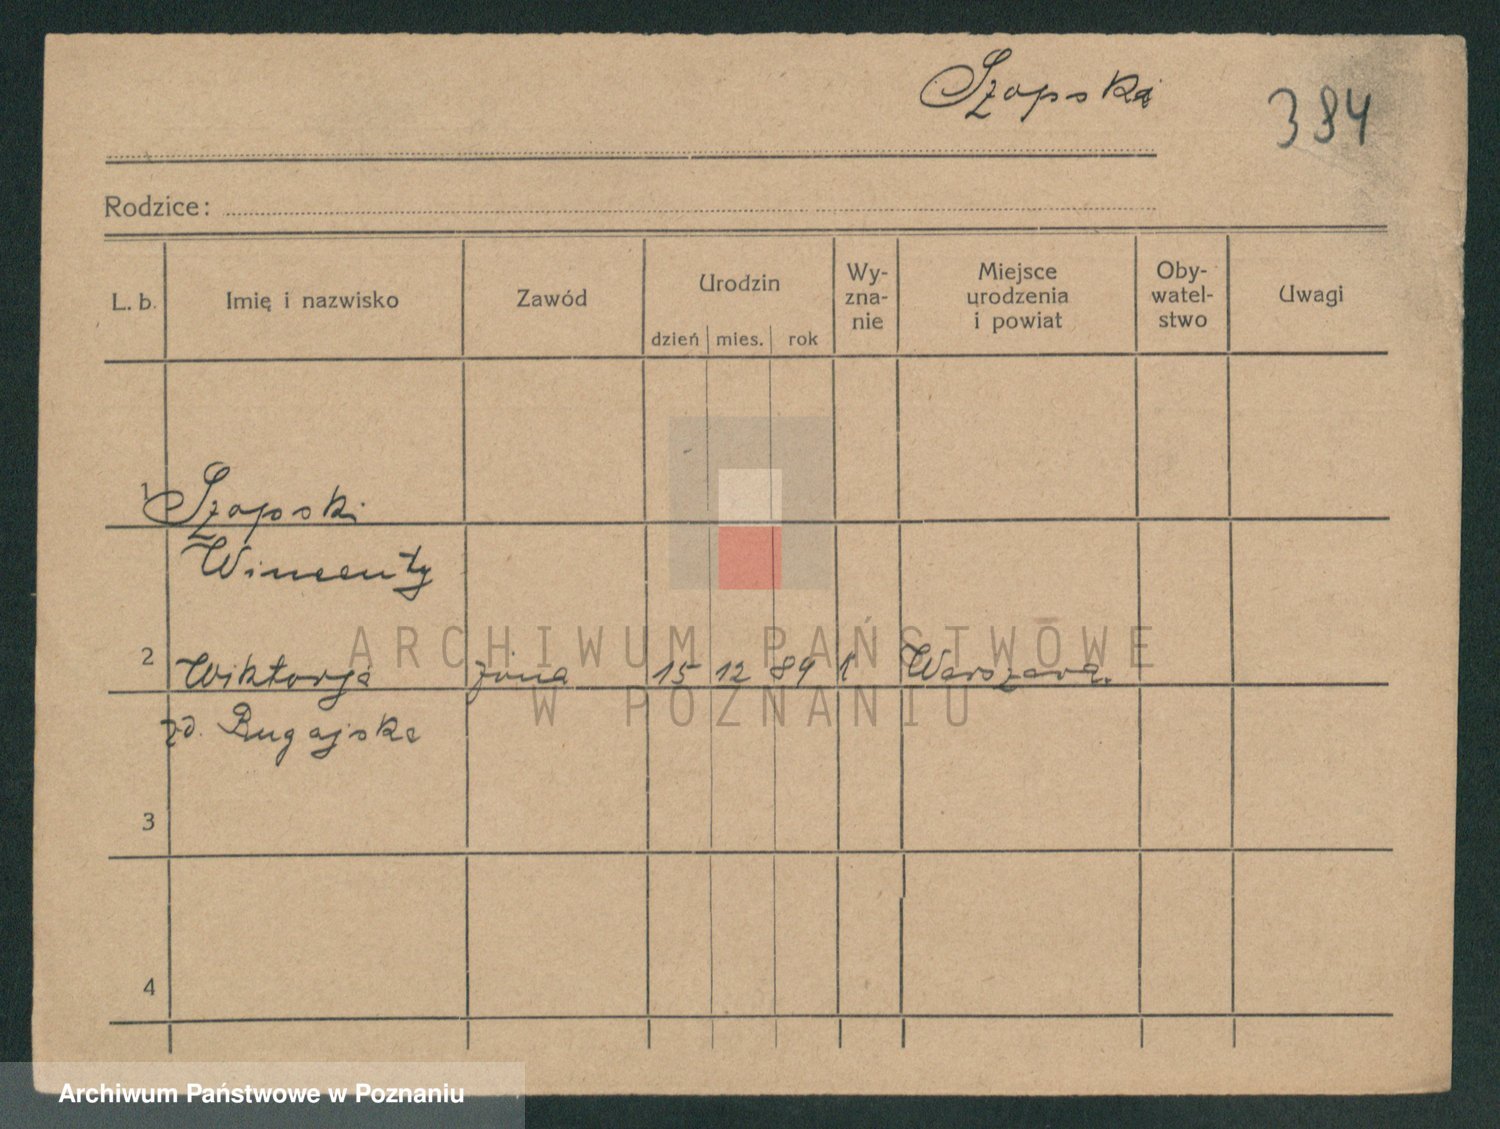 Szopska
384
Rodzice:
L. b. Imię i nazwisko Zawód Urodzin dzień mies. rok Wy-zna-nie Miejsce urodzenia i powiat Oby-watel-stwo Uwagi
1 Szopski
Wincenty
2 Wiktorja żona 15 12 89 k Warszawa.
zd. Rugajska
3
4
ARCHIWUM PAŃSTWOWE
W POZNANIU
Archiwum Państwowe w Poznaniu